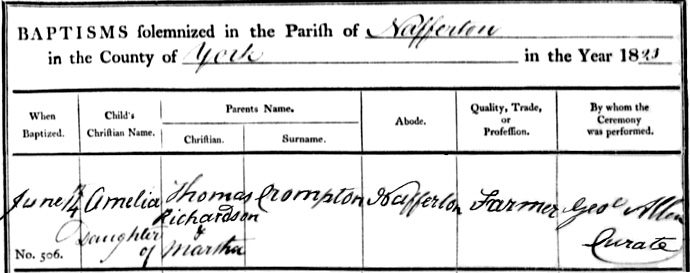 BAPTISMS solemnized in the Parish of Nafferton
in the County of York in the Year 18
When Baptized.
Child's Christian Name.
Parents Name.
Christian.
Surname.
Abode.
Quality, Trade, or Profession.
By whom the Ceremony was performed.
June Amelia Thomas Crompton Nafferton Farmer Geo Allen
Richardson
Daughter & Curate
No. 506. of Martha